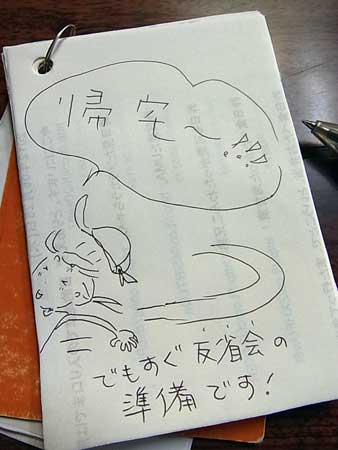 帰宅〜!!!
でもすぐ反省会の
準備です!